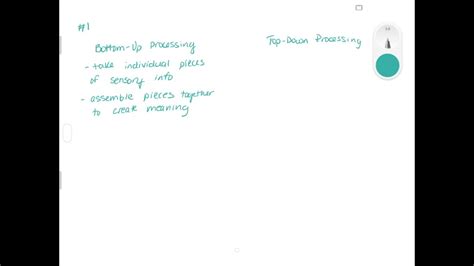 #1
Bottom-Up Processing
- take individual pieces
of sensory info
- assemble pieces together
to create meaning
Top-Down Processing